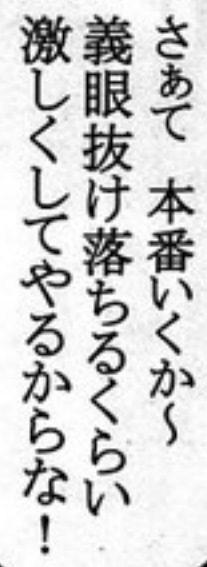 さぁて　本番いくか〜
義眼抜け落ちるくらい
激しくしてやるからな！